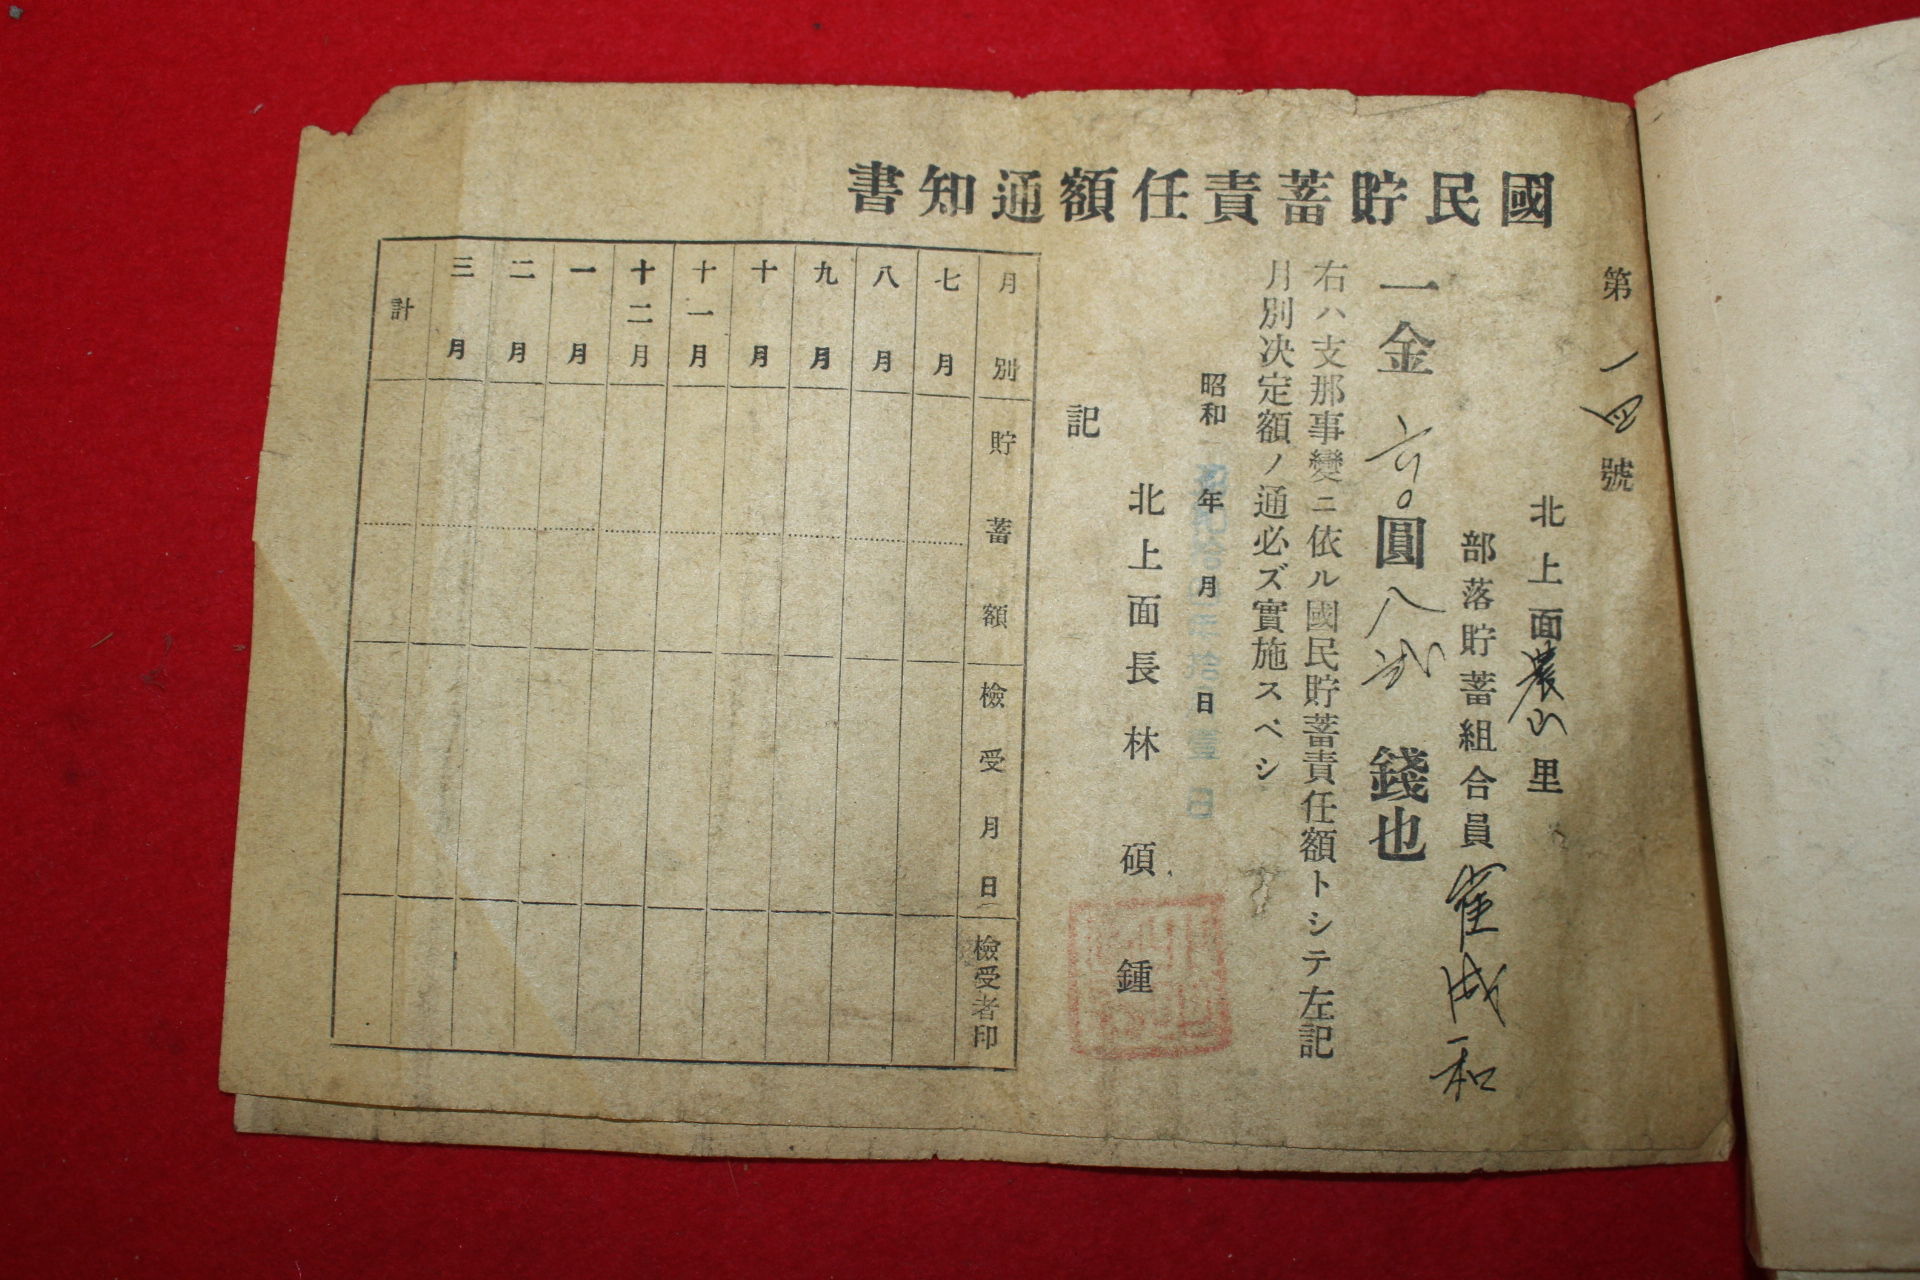 國民貯蓄責任額通知書
第一四號
北上面農山里
部落貯蓄組合員 崔成和
一金六〇圓八弐錢也
右ハ支那事變ニ依ル國民貯蓄責任額トシテ左記
月別決定額ノ通必ズ實施スベシ
昭和 年 月 日
北上面長 林碩鍾
記
月別 貯蓄額 檢受月日 檢受者印
七月
八月
九月
十月
十一月
十二月
一月
二月
三月
計